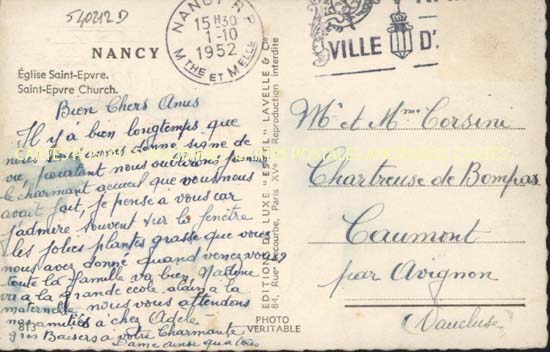 540212 D
NANCY R.P
15H30
1-10
1952
Mthe ET Melle
VILLE D'
NANCY
Église Saint-Epvre.
Saint-Epvre Church.
Bien Chers Amis
Il y a bien longtemps que
nous avons donné signe de
vie, pourtant nous oublirons jamais
le charmant accueil que vous nous
avait fait, je pense à vous car
j'admire souvent sur la fenêtre
les jolies plantes grasse que vous
nous avez donné quand venez vous
toute la famille va bien Nadine
va a la grande ecole alain à la
maternelle nous vous attendons
à chez Adèle
gros Baisers a votre Charmante
Dame ainsi qu'a tous
813
PHOTO
VERITABLE
EDITIONS DE LUXE "ESTEL" LAVELLE & Cie
84, Rue Lecourbe, Paris XVe - Reproduction interdite
Mr et Mme Corsini
Chartreuse de Bompas
Caumont
par Avignon
(Vaucluse)